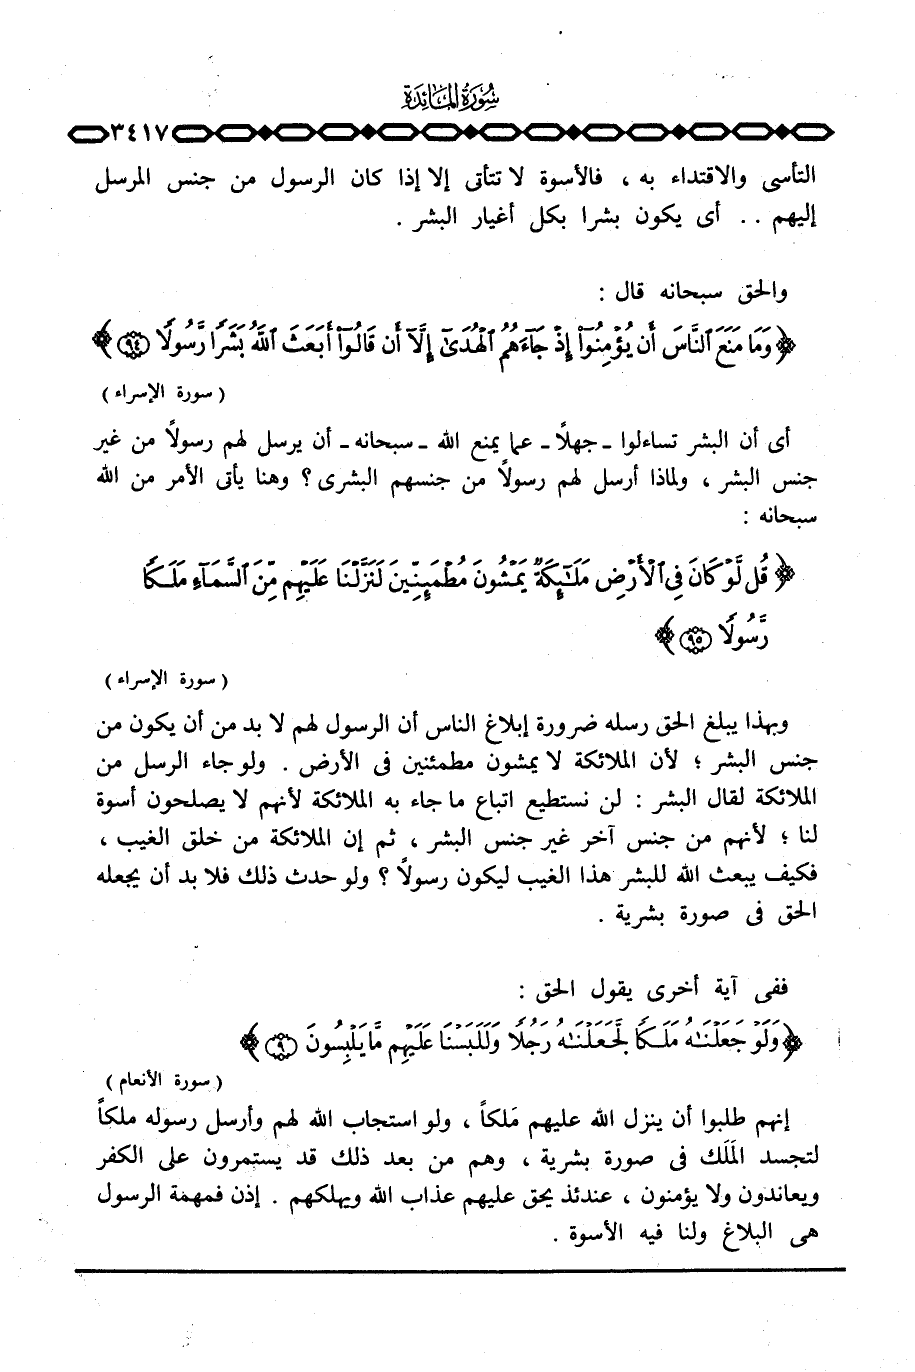 سُورَةُ المَائدَة
٣٤١٧
التأسى والاقتداء به ، فالأسوة لا تتأتى إلا إذا كان الرسول من جنس المرسل
إليهم . . أى يكون بشرا بكل أغيار البشر .
والحق سبحانه قال :
﴿ وَمَا مَنَعَ ٱلنَّاسَ أَن يُؤْمِنُوٓا۟ إِذْ جَآءَهُمُ ٱلْهُدَىٰٓ إِلَّآ أَن قَالُوٓا۟ أَبَعَثَ ٱللَّهُ بَشَرًا رَّسُولًا ٩٤ ﴾
( سورة الإسراء )
أى أن البشر تساءلوا ـ جهلاً ـ عما يمنع الله ـ سبحانه ـ أن يرسل لهم رسولاً من غير
جنس البشر ، ولماذا أرسل لهم رسولاً من جنسهم البشرى ؟ وهنا يأتى الأمر من الله
سبحانه :
﴿ قُل لَّوْ كَانَ فِى ٱلْأَرْضِ مَلَـٰٓئِكَةٌ يَمْشُونَ مُطْمَئِنِّينَ لَنَزَّلْنَا عَلَيْهِم مِّنَ ٱلسَّمَآءِ مَلَكًا
رَّسُولًا ٩٥ ﴾
( سورة الإسراء )
وبهذا يبلغ الحق رسله ضرورة إبلاغ الناس أن الرسول لهم لا بد من أن يكون من
جنس البشر ؛ لأن الملائكة لا يمشون مطمئنين فى الأرض . ولو جاء الرسل من
الملائكة لقال البشر : لن نستطيع اتباع ما جاء به الملائكة لأنهم لا يصلحون أسوة
لنا ؛ لأنهم من جنس آخر غير جنس البشر ، ثم إن الملائكة من خلق الغيب ،
فكيف يبعث الله للبشر هذا الغيب ليكون رسولاً ؟ ولو حدث ذلك فلا بد أن يجعله
الحق فى صورة بشرية .
ففى آية أخرى يقول الحق :
﴿ وَلَوْ جَعَلْنَـٰهُ مَلَكًا لَّجَعَلْنَـٰهُ رَجُلًا وَلَلَبَسْنَا عَلَيْهِم مَّا يَلْبِسُونَ ٩ ﴾
( سورة الأنعام )
إنهم طلبوا أن ينزل الله عليهم مَلكاً ، ولو استجاب الله لهم وأرسل رسوله ملكاً
لتجسد المَلَك فى صورة بشرية ، وهم من بعد ذلك قد يستمرون على الكفر
ويعاندون ولا يؤمنون ، عندئذ يحق عليهم عذاب الله ويهلكهم . إذن فمهمة الرسول
هى البلاغ ولنا فيه الأسوة .